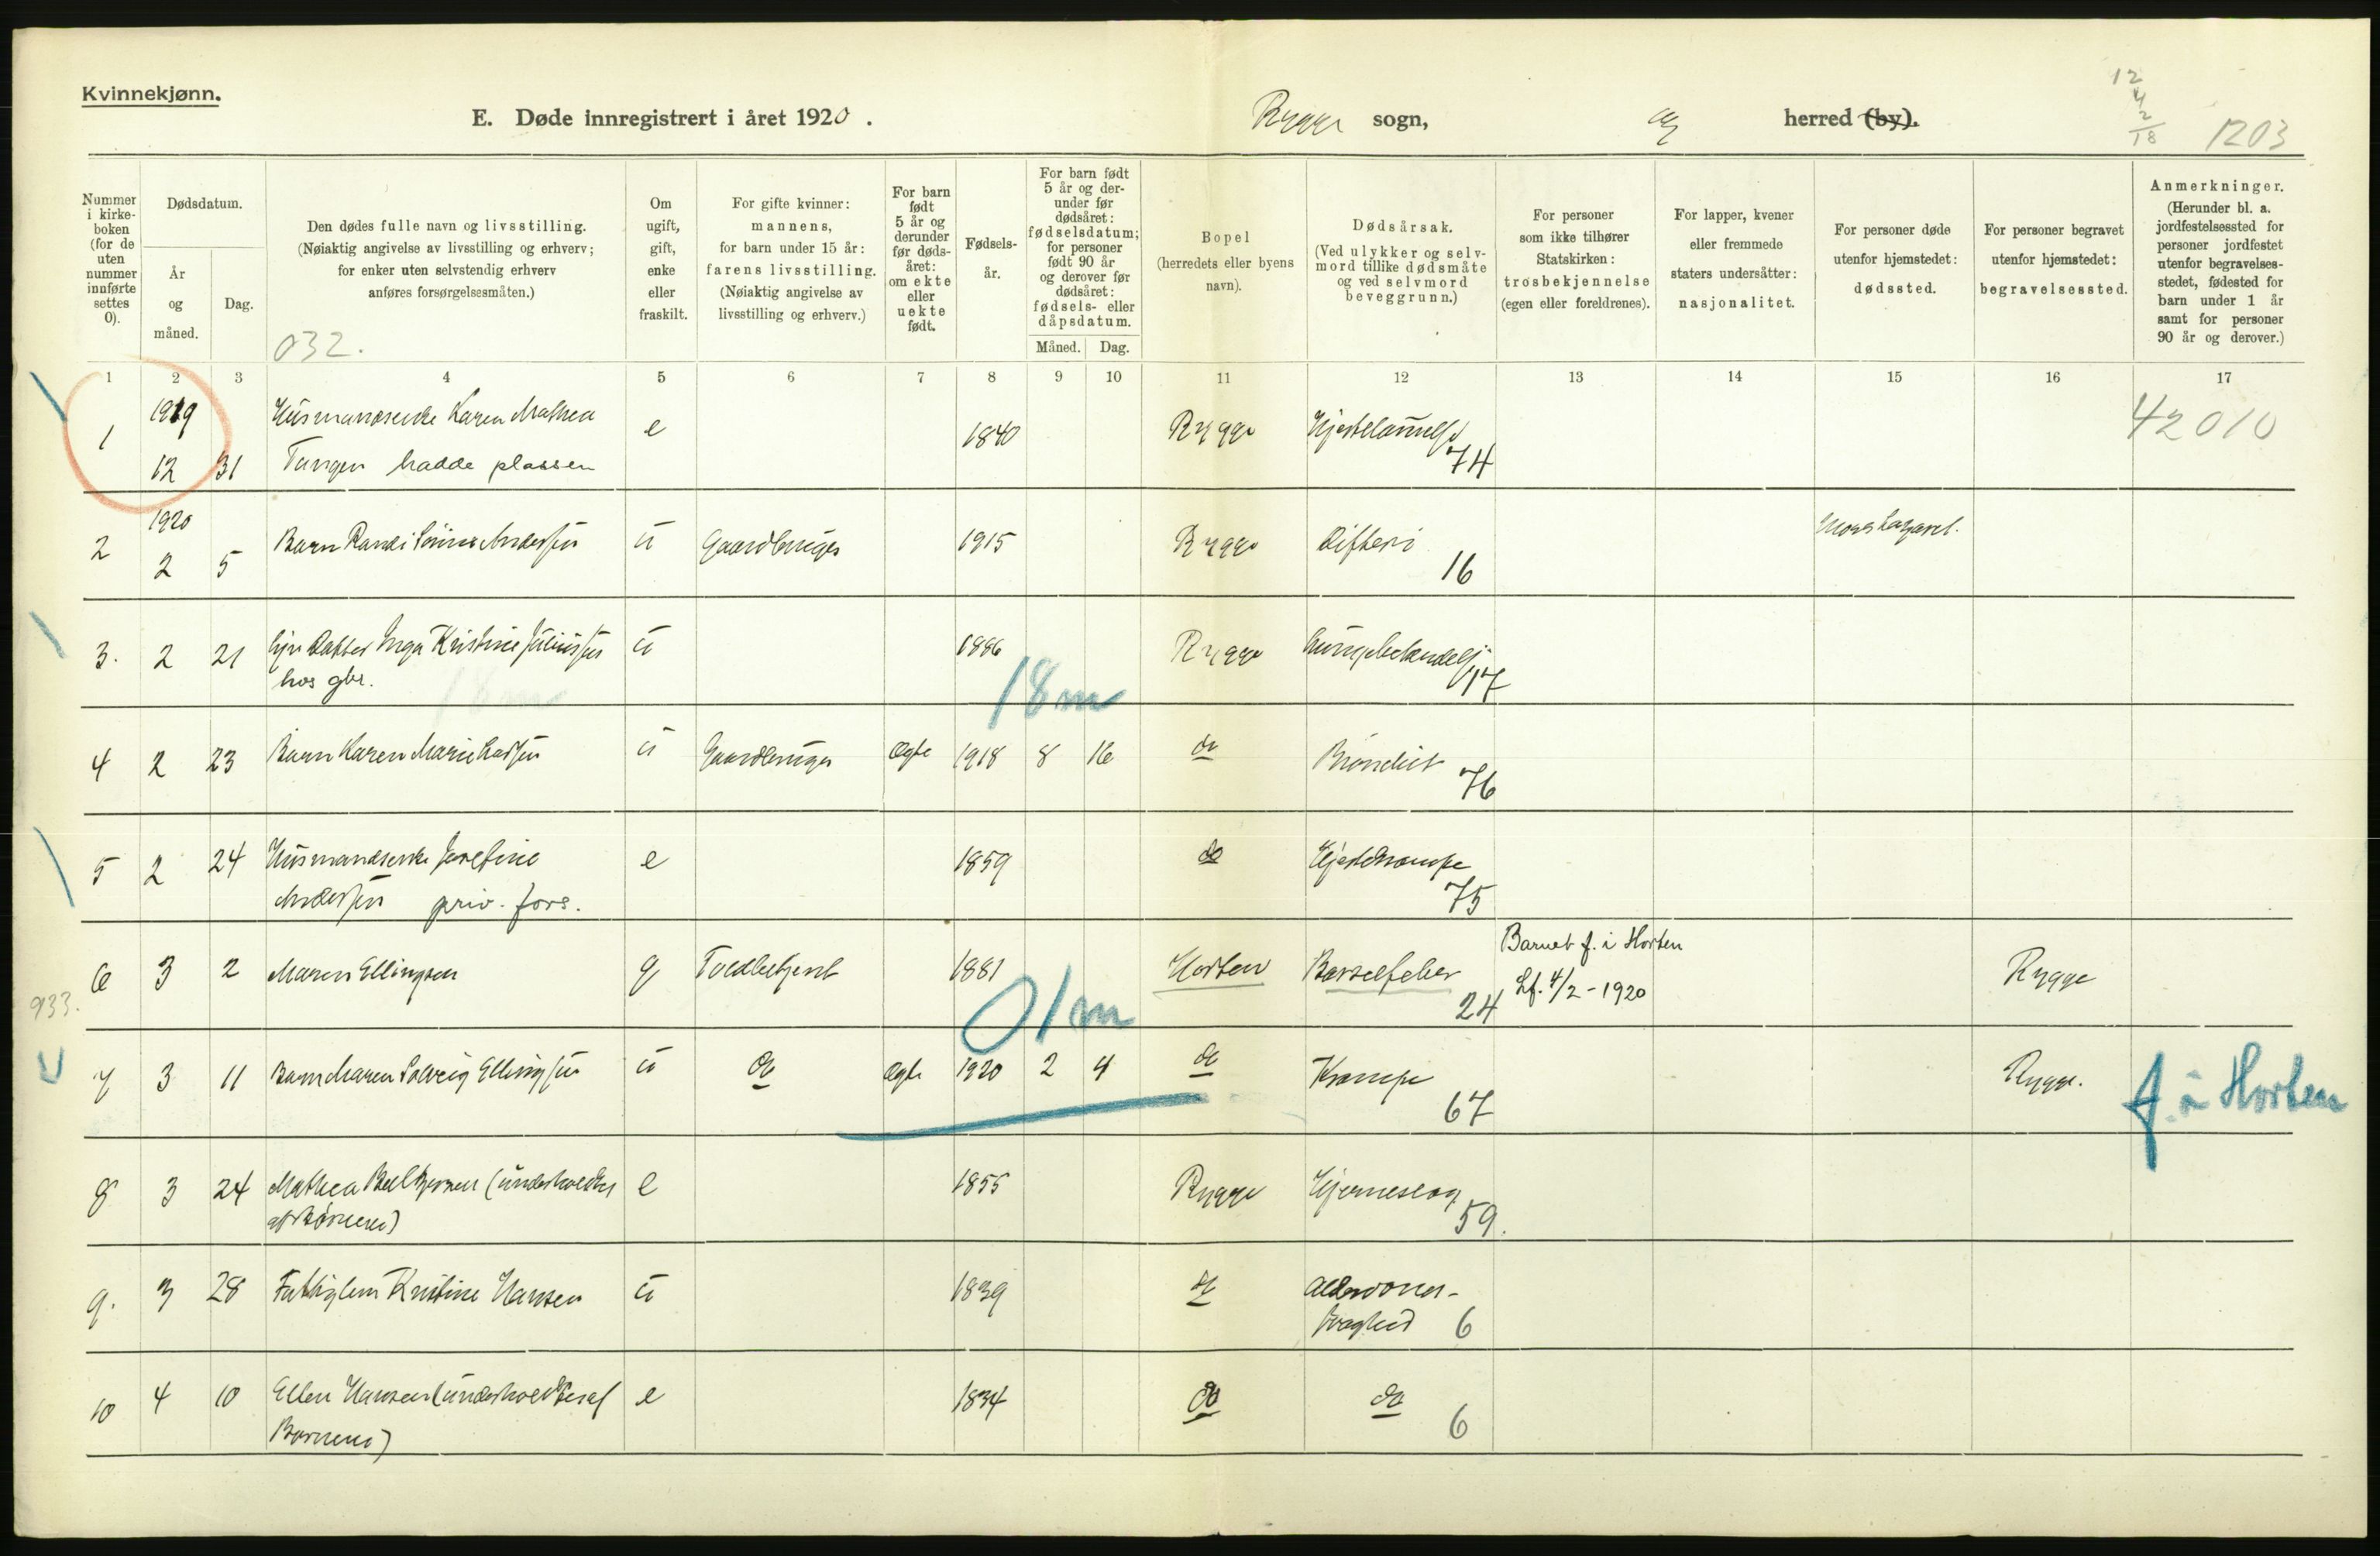 Kvinnekjønn.
E. Døde innregistrert i året 1920.
Rygge sogn, og herred (by).
12
4
2
18
1203
Nummer i kirkeboken (for de uten nummer innførte settes 0).
Dødsdatum.
År og måned.
Dag.
Den dødes fulle navn og livsstilling.
(Nøiaktig angivelse av livsstilling og erhverv;
for enker uten selvstendig erhverv
anføres forsørgelsesmåten.)
032.
Om ugift, gift, enke eller fraskilt.
For gifte kvinner: mannens, for barn under 15 år: farens livsstilling. (Nøiaktig angivelse av livsstilling og erhverv.)
For barn født 5 år og derunder før dødsåret: om ekte eller uekte født.
Fødselsår.
For barn født 5 år og derunder før dødsåret: fødselsdatum; for personer født 90 år og derover før dødsåret: fødsels- eller dåpsdatum.
Måned. Dag.
Bopel (herredets eller byens navn).
Dødsårsak. (Ved ulykker og selvmord tillike dødsmåte og ved selvmord beveggrunn.)
For personer som ikke tilhører Statskirken: trosbekjennelse (egen eller foreldrenes).
For lapper, kvener eller fremmede staters undersåtter: nasjonalitet.
For personer døde utenfor hjemstedet: dødssted.
For personer begravet utenfor hjemstedet: begravelsessted.
Anmerkninger. (Herunder bl. a. jordfestelsessted for personer jordfestet utenfor begravelsesstedet, fødested for barn under 1 år samt for personer 90 år og derover.)
1 2 3 4 5 6 7 8 9 10 11 12 13 14 15 16 17
1 1919 12 31 Husmandsenke Karen Mathea e 1840 Rygge Hjertelammelse 74 42010
Tangen hadde plassen
2 1920 2 5 Barn Randi Andersen u Gaardbruger 1915 Rygge Difteri 16 Moss Lazaret.
3. 2 21 Datter Inga Kristine Juliussen u 1886 Rygge Lungebetændelse 17
hos gbr.
18m
4 2 23 Barn Karen Marie u Gaardbruger Ægte 1918 8 16 do Bronchit 76
5 2 24 Husmandsenke Josefine e 1859 do Hjertekrampe 75
Andersen priv. fors.
6 3 2 Maren Ellingsen g Toldbetjent 1881 Horten Barselfeber 24 Barnet f. i Horten Rygge
Lf. 4/2 - 1920
933.
01m
7 3 11 Barn Maren Solveig Ellingsen u do Ægte 1920 2 4 do Krampe 67 Rygge. f. i Horten
8 3 24 Mathea (underholdtes e 1855 Rygge Hjerneslag 59.
af Børnene)
9. 3 28 Fattiglem Kristine Hansen u 1839 do Alderdoms-
svaghed 6
10 4 10 Ellen Hansen (underholdtes af e 1834 do do 6
Børnene)